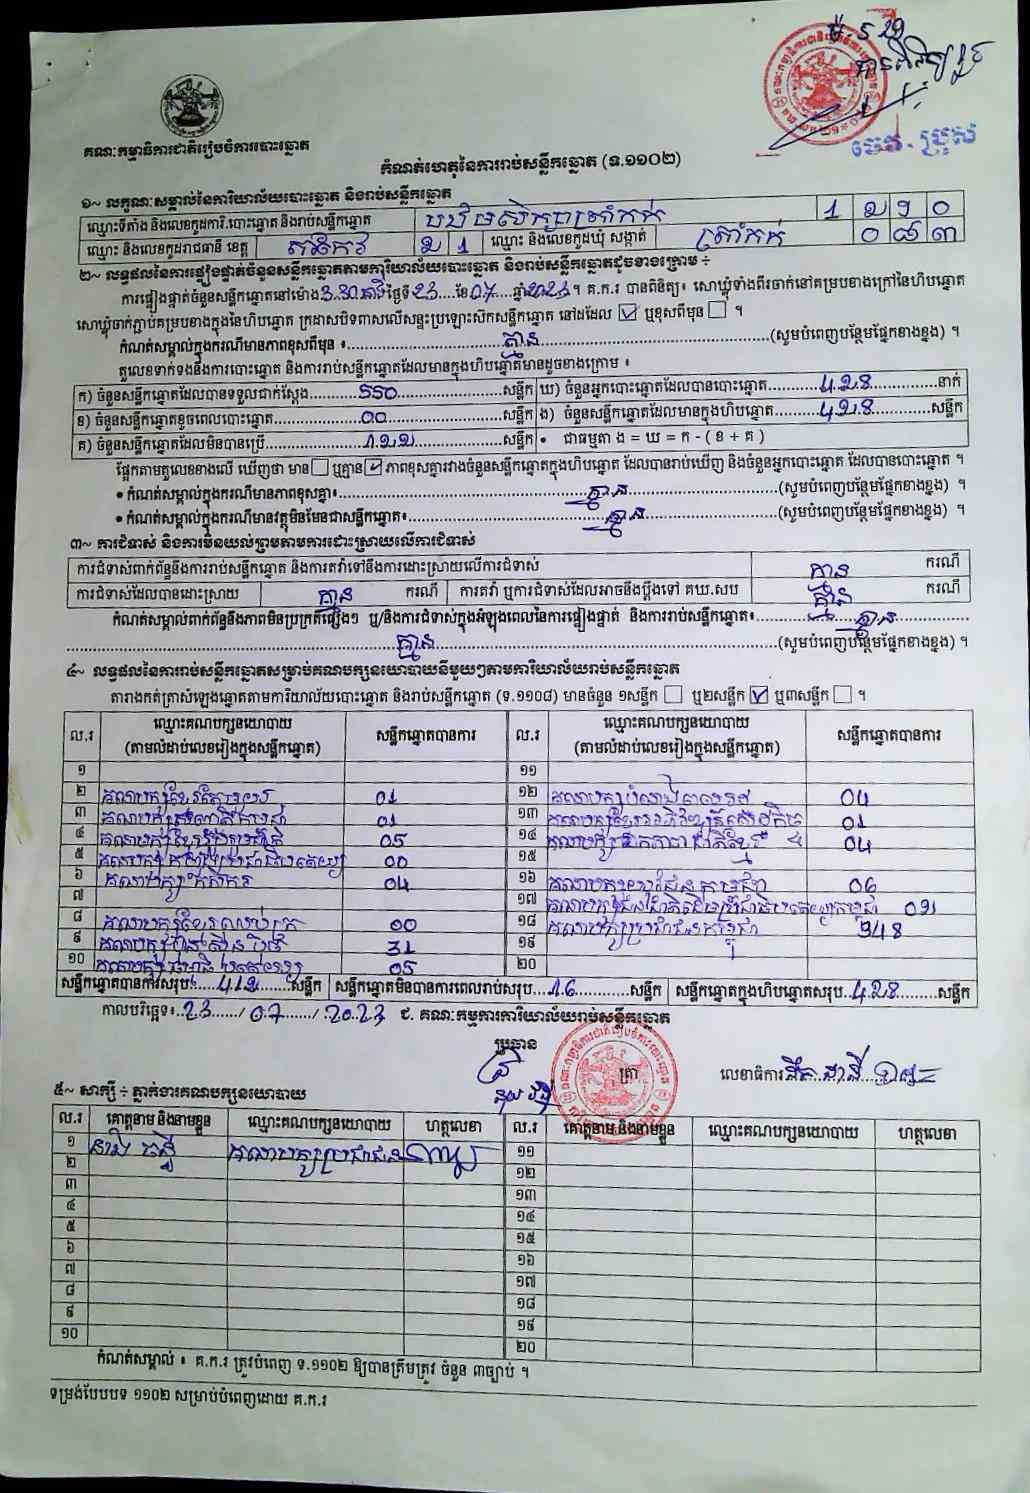 ម៉.5 29
គណៈកម្មាធិការជាតិរៀបចំការបោះឆ្នោត
កំណត់ហេតុនៃការរាប់សន្លឹកឆ្នោត (ទ.១១០២)
១~ លក្ខណៈសម្គាល់នៃការិយាល័យបោះឆ្នោត និងរាប់សន្លឹកឆ្នោត
ឈ្មោះទីតាំង និងលេខកូដការិ.បោះឆ្នោត និងរាប់សន្លឹកឆ្នោត 1 ២ ១ ០
ឈ្មោះ និងលេខកូដរាជធានី ខេត្ត តាកែវ ២ 1 ឈ្មោះ និងលេខកូដឃុំ សង្កាត់ ០ ៨ ៣
២~ លទ្ធផលនៃការផ្ទៀងផ្ទាត់ចំនួនសន្លឹកឆ្នោតតាមការិយាល័យបោះឆ្នោត និងរាប់សន្លឹកឆ្នោតដូចខាងក្រោម ÷
ការផ្ទៀងផ្ទាត់ចំនួនសន្លឹកឆ្នោតនៅម៉ោង 3:30 នាទី ថ្ងៃទី 23 ខែ 07 ឆ្នាំ 2023 ។ គ.ក.រ បានពិនិត្យ៖ សោឃ្មុំទាំងពីរចាក់នៅគម្របខាងក្រៅនៃហិបឆ្នោត
សោឃ្មុំចាក់ភ្ជាប់គម្របខាងក្នុងនៃហិបឆ្នោត ក្រដាសបិទពាសលើសន្ទះប្រឡោះស៊កសន្លឹកឆ្នោត នៅដដែល ☑ ឬខុសពីមុន ☐ ។
កំណត់សម្គាល់ក្នុងករណីមានភាពខុសពីមុន ៖ គ្មាន (សូមបំពេញបន្ថែមផ្នែកខាងខ្នង) ។
តួលេខទាក់ទងនឹងការបោះឆ្នោត និងការរាប់សន្លឹកឆ្នោតដែលមានក្នុងហិបឆ្នោតមានដូចខាងក្រោម ៖
ក) ចំនួនសន្លឹកឆ្នោតដែលបានទទួលជាក់ស្តែង 550 សន្លឹក ឃ) ចំនួនអ្នកបោះឆ្នោតដែលបានបោះឆ្នោត 428 នាក់
ខ) ចំនួនសន្លឹកឆ្នោតខូចពេលបោះឆ្នោត 00 សន្លឹក ង) ចំនួនសន្លឹកឆ្នោតដែលមានក្នុងហិបឆ្នោត 428 សន្លឹក
គ) ចំនួនសន្លឹកឆ្នោតដែលមិនបានប្រើ 122 សន្លឹក • ជាធម្មតា ង = ឃ = ក - ( ខ + គ )
ផ្អែកតាមតួលេខខាងលើ ឃើញថា មាន ☐ ឬគ្មាន ☑ ភាពខុសគ្នារវាងចំនួនសន្លឹកឆ្នោតក្នុងហិបឆ្នោត ដែលបានរាប់ឃើញ និងចំនួនអ្នកបោះឆ្នោត ដែលបានបោះឆ្នោត ។
• កំណត់សម្គាល់ក្នុងករណីមានភាពខុសគ្នា៖ គ្មាន (សូមបំពេញបន្ថែមផ្នែកខាងខ្នង) ។
• កំណត់សម្គាល់ក្នុងករណីមានវត្ថុមិនមែនជាសន្លឹកឆ្នោត៖ គ្មាន (សូមបំពេញបន្ថែមផ្នែកខាងខ្នង) ។
៣~ ការជំទាស់ និងការមិនយល់ព្រមតាមការដោះស្រាយលើការជំទាស់
ការជំទាស់ពាក់ព័ន្ធនឹងការរាប់សន្លឹកឆ្នោត និងការតវ៉ាទៅនឹងការដោះស្រាយលើការជំទាស់ គ្មាន ករណី
ការជំទាស់ដែលបានដោះស្រាយ គ្មាន ករណី ការតវ៉ា ឬការជំទាស់ដែលអាចនឹងប្តឹងទៅ គឃ.សប គ្មាន ករណី
កំណត់សម្គាល់ពាក់ព័ន្ធនឹងភាពមិនប្រក្រតីផ្សេងៗ ឬ/និងការជំទាស់ក្នុងអំឡុងពេលនៃការផ្ទៀងផ្ទាត់ និងការរាប់សន្លឹកឆ្នោត៖ គ្មាន
គ្មាន (សូមបំពេញបន្ថែមផ្នែកខាងខ្នង) ។
៤~ លទ្ធផលនៃការរាប់សន្លឹកឆ្នោតសម្រាប់គណបក្សនយោបាយនីមួយៗតាមការិយាល័យរាប់សន្លឹកឆ្នោត
តារាងកត់ត្រាសំឡេងឆ្នោតតាមការិយាល័យបោះឆ្នោត និងរាប់សន្លឹកឆ្នោត (ទ.១១០៨) មានចំនួន ១សន្លឹក ☐ ឬ២សន្លឹក ☑ ឬ៣សន្លឹក ☐ ។
ល.រ ឈ្មោះគណបក្សនយោបាយ (តាមលំដាប់លេខរៀងក្នុងសន្លឹកឆ្នោត) សន្លឹកឆ្នោតបានការ ល.រ ឈ្មោះគណបក្សនយោបាយ (តាមលំដាប់លេខរៀងក្នុងសន្លឹកឆ្នោត) សន្លឹកឆ្នោតបានការ
១ ១១
២ 01 ១២ 04
៣ 01 ១៣ 01
៤ 05 ១៤ 04
៥ 00 ១៥
៦ គណបក្សកសិករ 04 ១៦ 06
៧ ១៧
៨ 00 ១៨ គណបក្សប្រជាជនកម្ពុជា 348
៩ គណបក្សហ៊្វុនស៊ិនប៉ិច 31 ១៩
១០ 05 ២០
សន្លឹកឆ្នោតបានការសរុប 412 សន្លឹក សន្លឹកឆ្នោតមិនបានការពេលរាប់សរុប 16 សន្លឹក សន្លឹកឆ្នោតក្នុងហិបឆ្នោតសរុប 428 សន្លឹក
កាលបរិច្ឆេទ៖ 23 / 07 / 2023 ជ. គណៈកម្មការការិយាល័យរាប់សន្លឹកឆ្នោត
ប្រធាន
ត្រា
លេខាធិការ
៥~ សាក្សី ÷ ភ្នាក់ងារគណបក្សនយោបាយ
ល.រ គោត្តនាម និងនាមខ្លួន ឈ្មោះគណបក្សនយោបាយ ហត្ថលេខា ល.រ គោត្តនាម និងនាមខ្លួន ឈ្មោះគណបក្សនយោបាយ ហត្ថលេខា
១ គណបក្សប្រជាជន ១១
២ ១២
៣ ១៣
៤ ១៤
៥ ១៥
៦ ១៦
៧ ១៧
៨ ១៨
៩ ១៩
១០ ២០
កំណត់សម្គាល់ ៖ គ.ក.រ ត្រូវបំពេញ ទ.១១០២ ឱ្យបានត្រឹមត្រូវ ចំនួន ៣ច្បាប់ ។
ទម្រង់បែបបទ ១១០២ សម្រាប់បំពេញដោយ គ.ក.រ